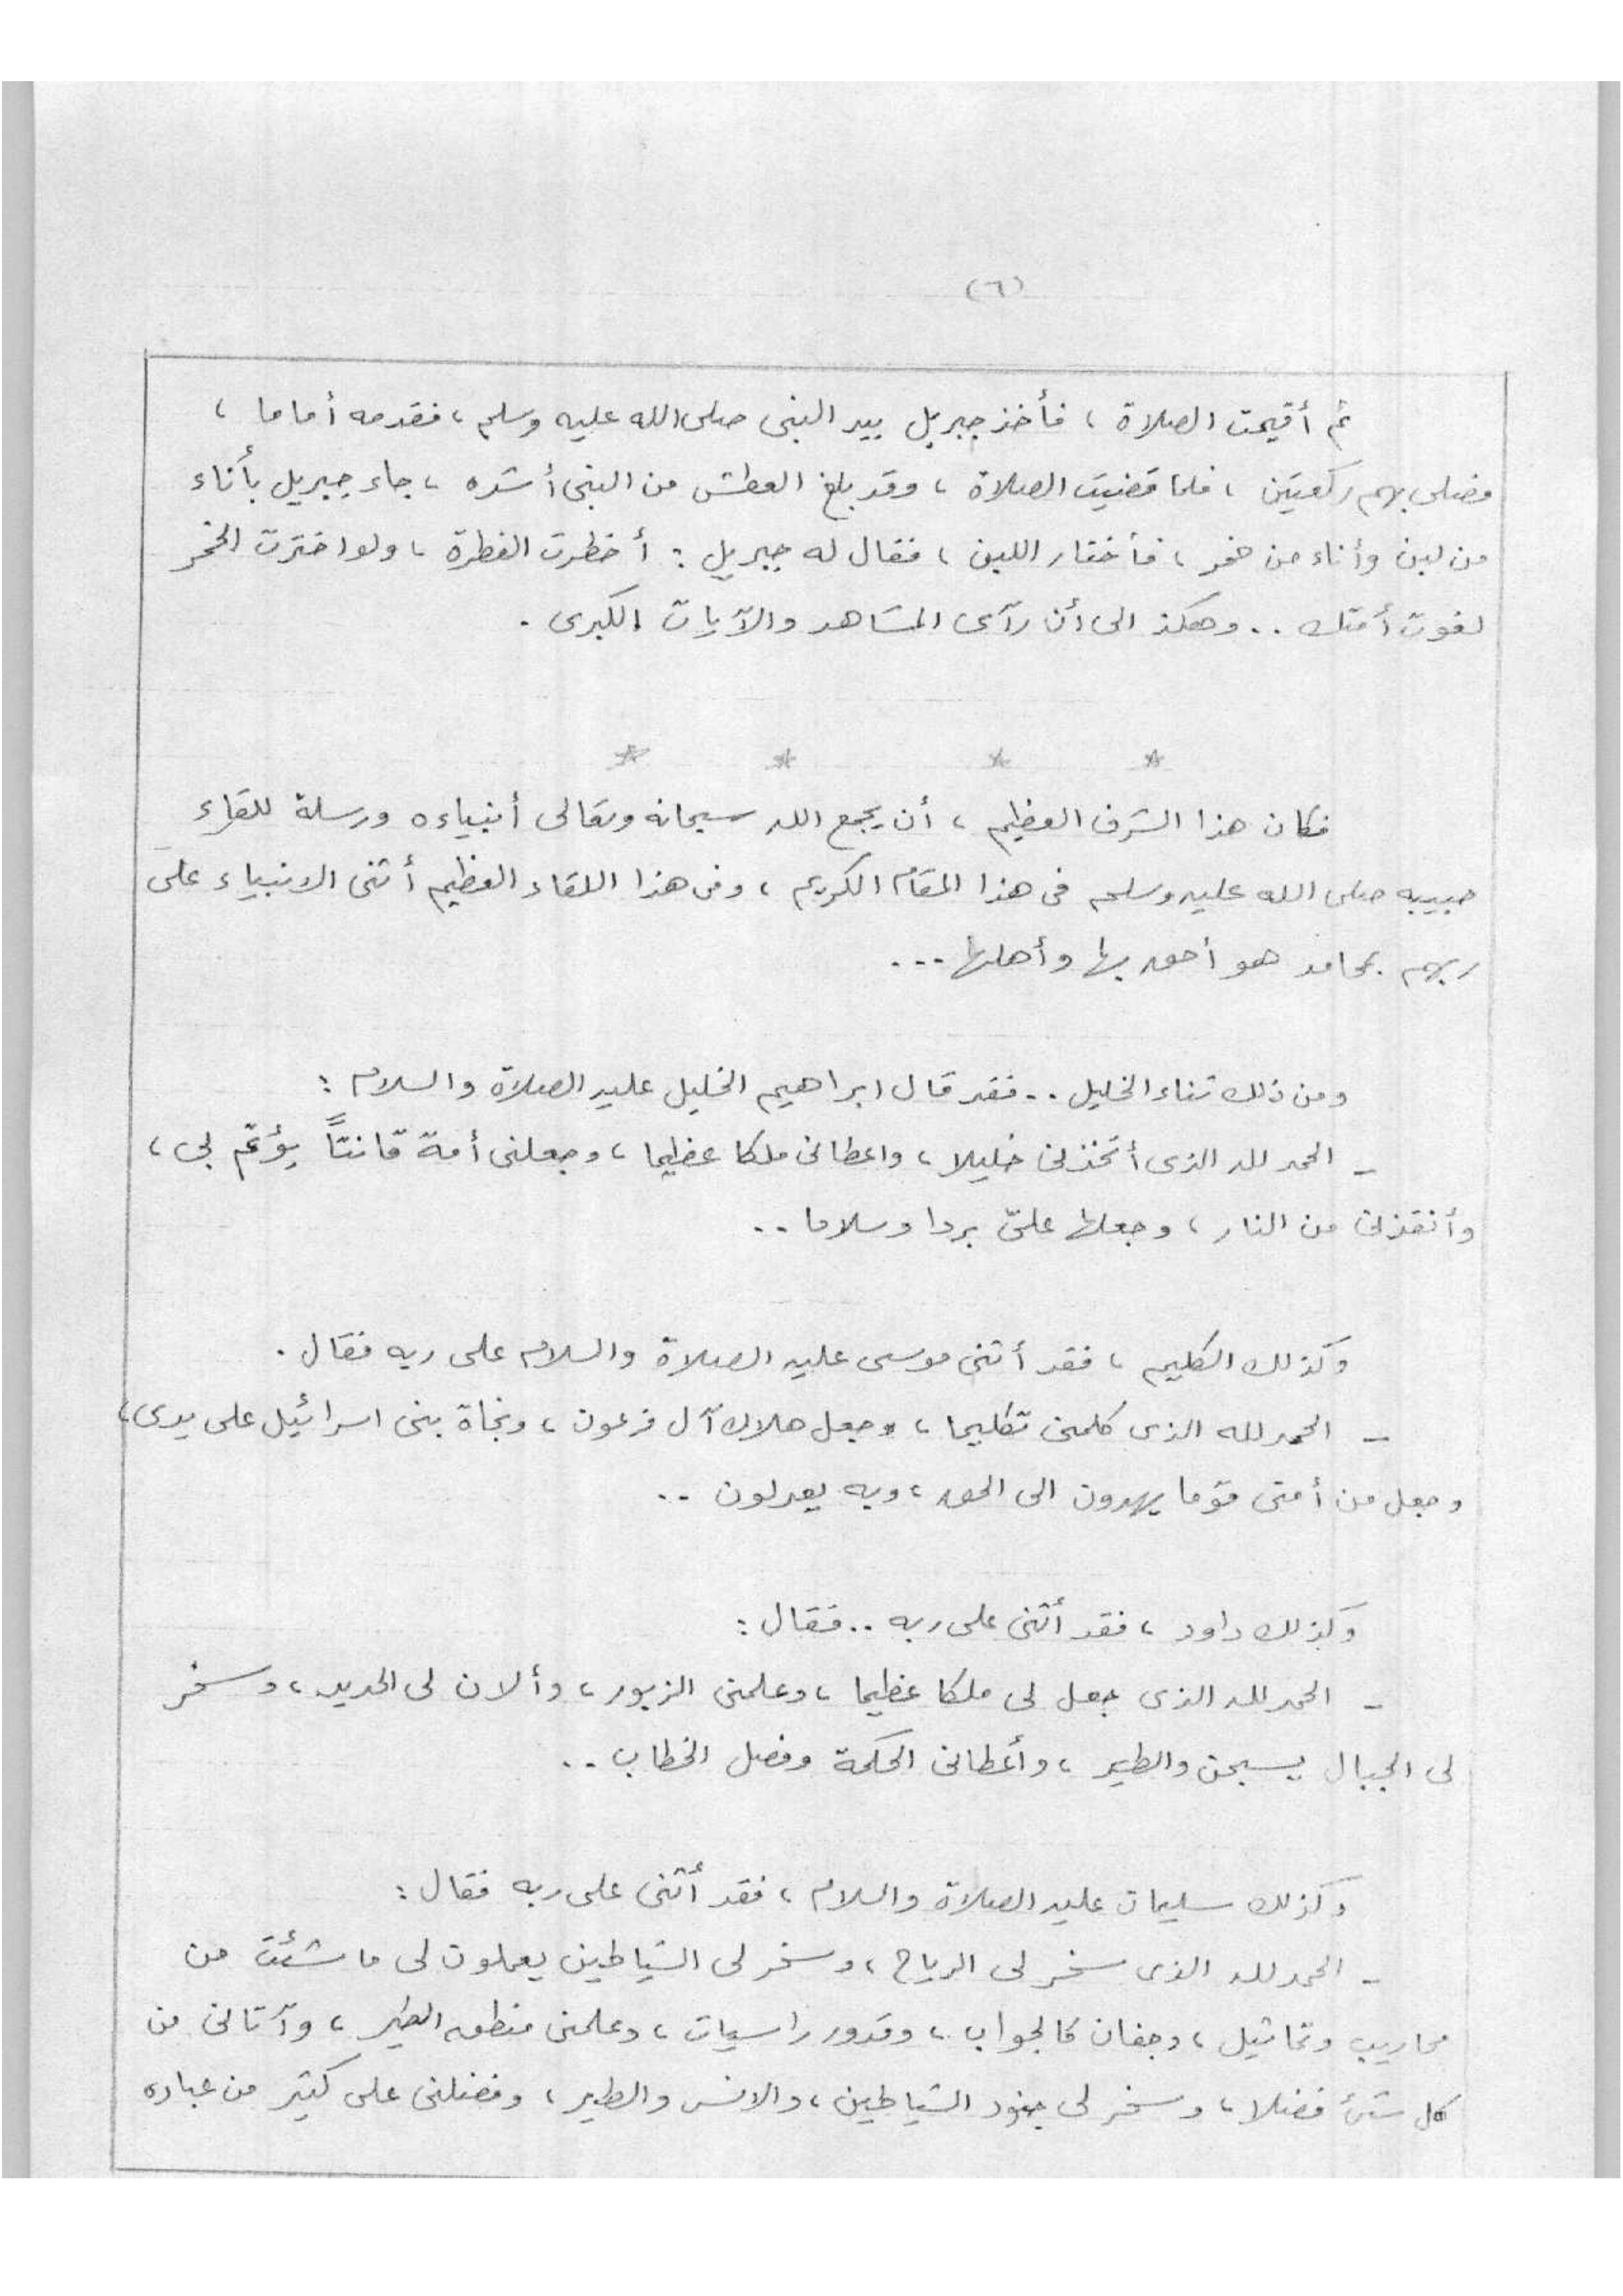 (٦)
ثم أقيمت الصلاة ، فأخذ جبريل بيد النبى صلى الله عليه وسلم ، فقدمه أماما ،
فصلى بهم ركعتين ، فلما قضيت الصلاة ، وقد بلغ العطش من النبى أشده ، جاء جبريل بأناء
من لبن وأناء من خمر ، فأختار اللبن ، فقال له جبريل : أخطرت الفطرة ، ولو اخترت الخمر
لغوت أمتك .. وهكذ الى أن رآى المشاهد والآيات الكبرى .
* * * *
فكان هذا الشرف العظيم ، أن يجمع الله سبحانه وتعالى أنبياءه ورسلة للقاء
حبيبه صلى الله عليه وسلم فى هذا المقام الكريم ، وفى هذا اللقاء العظيم أثنى الانبياء على
ربهم بمحامد هو أحق بها وأهلها ...
ومن ذلك ثناء الخليل .. فقد قال ابراهيم الخليل عليه الصلاة والسلام :
- الحمد لله الذى أتخذنى خليلا ، واعطانى ملكا عظيما ، وجعلنى أمة قانتاً يؤتم بى ،
وأنقذنى من النار ، وجعلها علىّ بردا وسلاما ..
وكذلك الكليم ، فقد أثنى موسى عليه الصلاة والسلام على ربه فقال .
- الحمد لله الذى كلمنى تكليما ، وجعل هلاك آل فرعون ، ونجاة بنى اسرائيل على يدى ،
وجعل من أمتى قوما يهدون الى الحق ، وبه يعدلون ..
وكذلك داود ، فقد أثنى على ربه .. فقال :
- الحمد لله الذى جعل لى ملكا عظيما ، وعلمنى الزبور ، وألان لى الحديد ، وسخر
لى الجبال يسبحن والطير ، وأعطانى الحكمة وفصل الخطاب ..
وكذلك سليمان عليه الصلاة والسلام ، فقد أثنى على ربه فقال :
- الحمد لله الذى سخر لى الرياح ، وسخر لى الشياطين يعملون لى ما شئت من
محاريب وتماثيل ، وجفان كالجواب ، وقدور راسيات ، وعلمنى منطق الطير ، وآتانى من
كل شئ فضلا ، وسخر لى جنود الشياطين ، والانس والطير ، وفضلنى على كثير من عباده